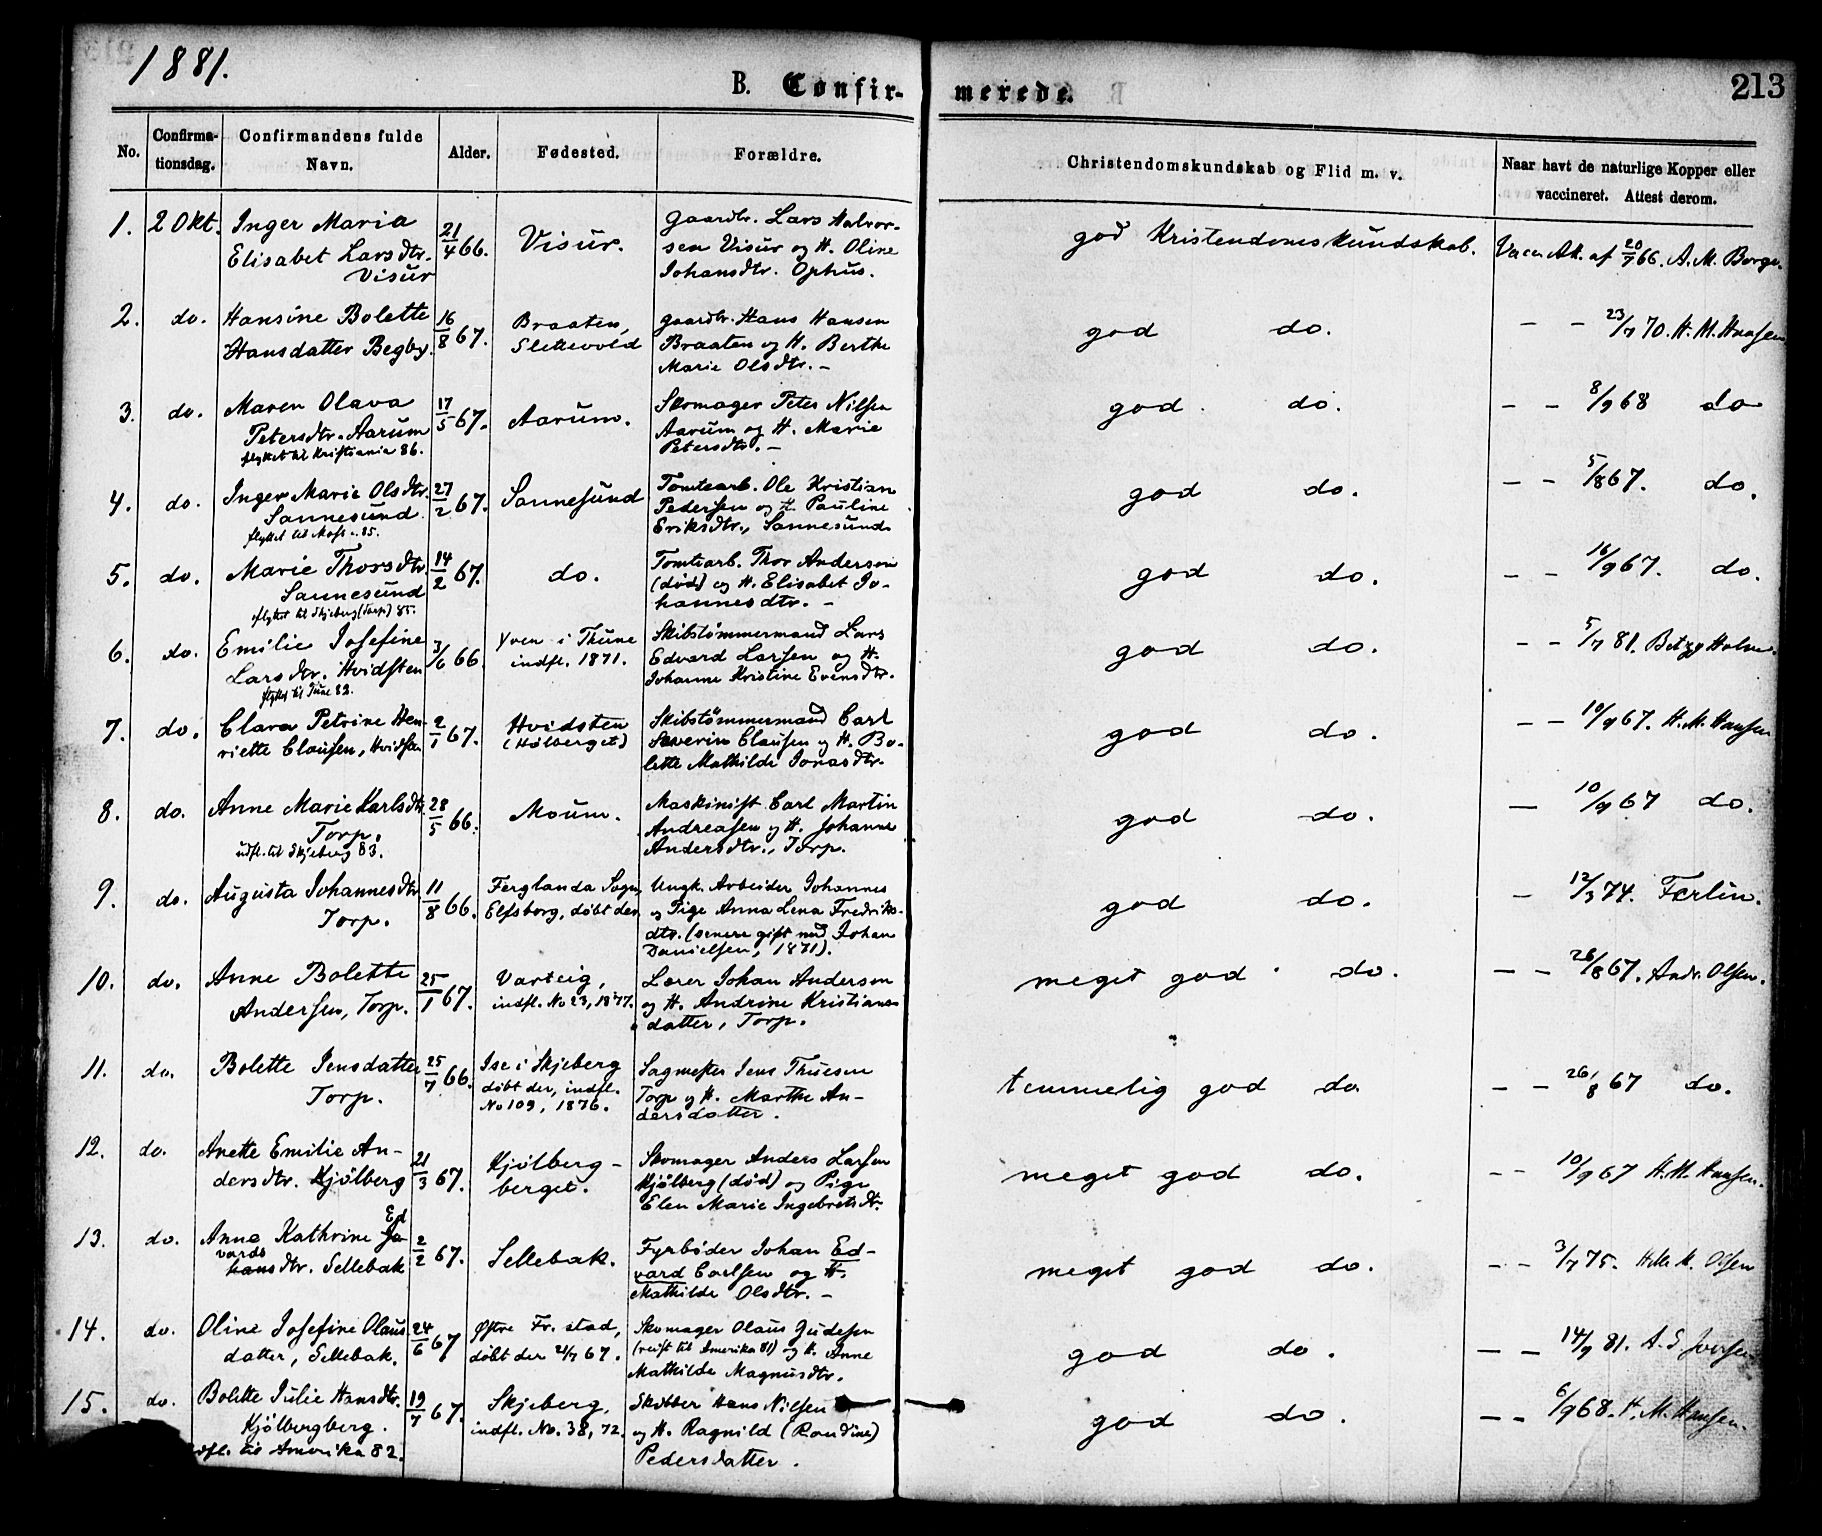 1881.
B. Confir- merede.
213
No.
Confirma-
tionsdag.
Confirmandens fulde
Navn.
Alder.
Fødested.
Forældre.
Christendomskundskab og Flid m. v.
Naar havt de naturlige Kopper eller
vaccineret. Attest derom.
1. 2 Okt. Inger Maria
Elisabet Larsdtr.
Visur
21/4 66. Visur.
Gaardbr. Lars Halvor-
sen Visur og H. Oline
Johansdtr. Ophus.
god Kristendomskundskab. Vacc. Att. af 20/7 66. A. M. Borge.
2. do. Hansine Bolette
Hansdatter Begby.
16/8 67. Braaten,
Slettevold
Gaardbr. Hans Hansen
Braaten og H. Berthe
Marie Olsdtr. –
god do. – – 23/7 70. H. M. Hansen
3. do. Maren Olava
Petersdtr. Aarum
flyttet til Kristiania 86.
17/5 67. Aarum.
Skomager Peter Nilsen
Aarum og H. Marie
Petersdtr. –
god do. – – 8/9 68 do
4. do. Inger Marie Olsdtr.
Sannesund
flyttet til Moss. 85.
27/2 67. Sannesund
Tomtearb. Ole Kristian
Pedersen og H. Pauline
Eriksdtr., Sannesund
god do. – – 5/8 67. do.
5. do. Marie Thorsdtr.
Sannesund
flyttet til Skjeberg (Torp) 85.
14/2 67. do.
Tomtearb. Thor Andersen
(død) og H. Elisabet Jo-
hannesdtr. –
god do. – – 16/9 67. do.
6. do. Emilie Josefine
Larsdtr. Hvidsten
flyttet til Tune 82.
3/6 66. Yven i Thune
indfl. 1871.
Skibstømmermand Lars
Edvard Larsen og H.
Johanne Kristine Evensdtr.
god do. – – 5/7 81. Betzy Holm.
7. do. Clara Petrine Hen-
riette Clausen, Hvidsten
2/1 67. Hvidsten
(Hølberget)
Skibstømmermand Carl
Severin Clausen og H. Bo-
lette Mathilde Jonasdtr.
god do. – – 10/9 67. H. M. Hansen
8. do. Anne Marie Karlsdtr.
Torp.
udfl. til Skjeberg 83.
28/5 66. Moum.
Maskinist Carl Martin
Andreasen og H. Johanne
Andersdtr., Torp.
god do. – 10/9 67 do.
9. do. Augusta Johannesdtr.
Torp.
11/8 66. Ferglanda Sogn,
Elfsborg, døbt der
Ungk. Arbeider Johannes
og Pige Anna Lena Fredriks-
dtr. (senere gift med Johan
Danielsen, 1871).
god do. – 12/3 74. Ferlin.
10. do. Anne Bolette
Andersen, Torp.
25/1 67. Varteig,
indfl. No 23, 1877.
Lærer Johan Andersen
og H. Andrine Kristians-
datter, Torp.
meget god do. – – 26/8 67. Andr. Olsen.
11. do. Bolette Jensdatter
Torp.
25/7 66. Ise i Skjeberg
døbt der, indfl.
No 109, 1876.
Sagmester Jens Thuesen
Torp og H. Marthe An-
dersdatter.
temmelig god do – – 26/8 67 do.
12. do. Anette Emilie An-
dersdtr. Kjølberg
21/3 67. Kjølberg-
berget.
Skomager Anders Larsen
Kjølberg (død) og Pige
Elen Marie Ingebretsdtr.
meget god do. – – 10/9 67 H. M. Hansen.
13. do. Anne Kathrine Jo Ed
vards
hansdtr. Sellebak
2/2 67. Sellebak.
Fyrbøder Johan Ed-
vard Carlsen og H.
Mathilde Olsdtr. –
meget god do. – – 3/7 75. M. Olsen
14. do. Oline Josefine Olaus
datter, Sellebak.
24/6 67 Østre Fr. stad,
døbt der 21/7 67.
Skomager Olaus Gudesen
(reist til Amerika 81) og H. Anne
Mathilde Magnusdtr.
god do. – – 14/9 81. A. S. Iversen
15. do. Bolette Julie Hansdtr.
Kjølbergberg.
udfl. til Amerika 82.
19/7 67. Skjeberg,
indfl. No. 38, 72.
Skibber Hans Nilsen
og H. Ragnild (Randine)
Pedersdatter.
god do. – – 6/9 68. H. M. Hansen.